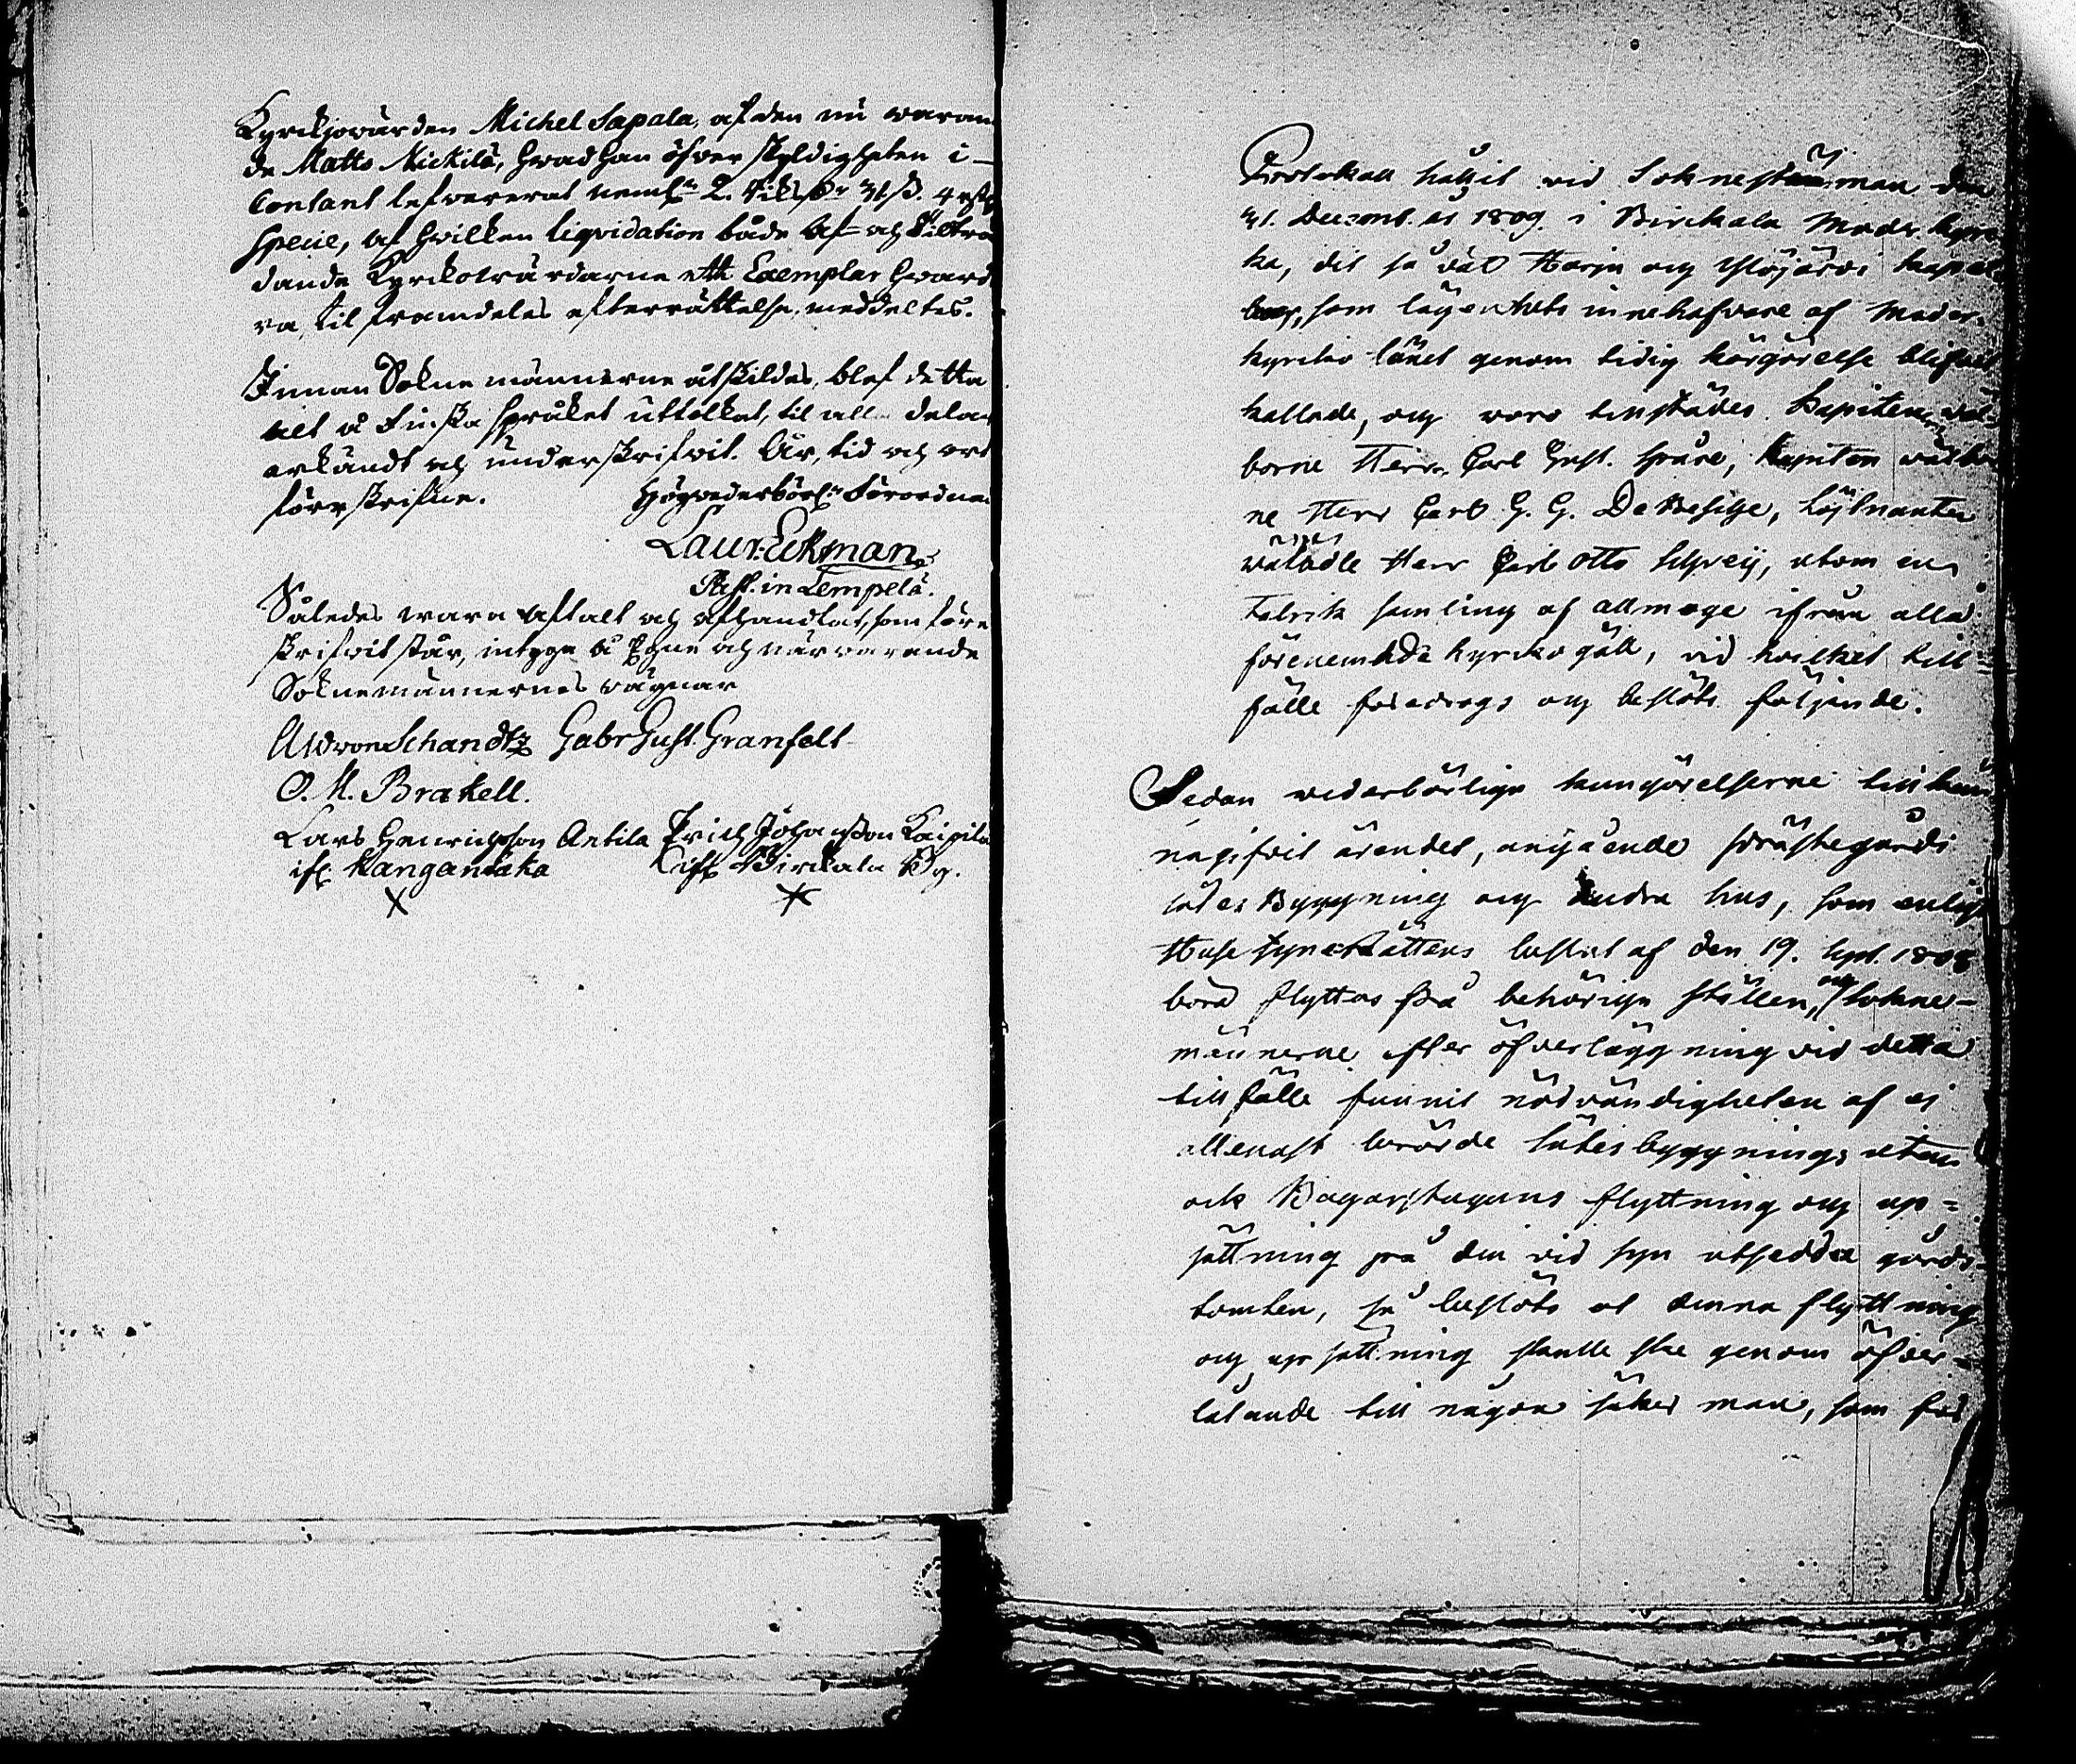 Kyrckjowärden Michel Sapala, af den nu waran
de Matts Nickilä, hwad han öfwer skyldigheten i
Contant lefwererat neml:n 2. Riksd:r 31 ß. 4 rst
Specie, af hwilken liqvidation både af- och Tilträ
dande Kyrckowärdarne ett Exemplar hward
ra til framdeles efterrättelse meddeltes.
Innan Sokne männerne åtskildes, blef detta
alt å Finska språket uttolkat, til alla delar
erkändt och underskrifwit. År, tid och ort
förr skrifne. Högvederbörl:n Förordnad
Laur: Eckman
Past. in Lempelä.
Således wara aftalt och afhandlat, som före
skrifwit står, intyga å Egne och närvarande
Soknemännernes vägnar
AW von Schandtz Gabr Gust. Granfelt
O. M. Brakell.
Lars Henrichsson Antila Erich Johansson Kaipila
ifr Kangantaka ifr Birckala By.
X X
Protokoll hållit vid Soknestämman den
31. Decemb. år 1809. i Birckala Moder kyrc
ka, dit så väl Harju och Ylöjärvi kapell
boer, som lägenhets innehafvare af Moder
kyrcko länet genom tidig kungörelse blifvit
kallade, och woro tillstädes Kapitenen wäl
borne Herr Carl Gust. Spåre, Kapiten wälbor
ne Herr Carl G. G. De Besche, Löjtnanten
wäladle Herr Carl Otto Schreij, utom en
talrik samling af allmoge ifrån alla
förenemnde kyrcko gäll, vid hvilket till
fälle föredrogs och beslöts följande.
Sedan wederbörlige kungörelserne till känna
nagifvit ärendet, angående Prästegårds
sätes Byggning och andra hus, som enligt
Huse syne Rättens beslut af den 19. Sept. 1808
bord flyttas på behörige ställen, och Sokne-
männerne efter öfverläggning vid detta
tillfälle funnit nödvändigheten af ej
allenast berörde sätesbyggnings utan
ock Bagarstugans flyttning och up=
sättning på den vid syn utsedda gårds
tomten, så beslöts at denna flyttning
och upsättning skulle ske genom öfver=
låtande till någon säker man, som för